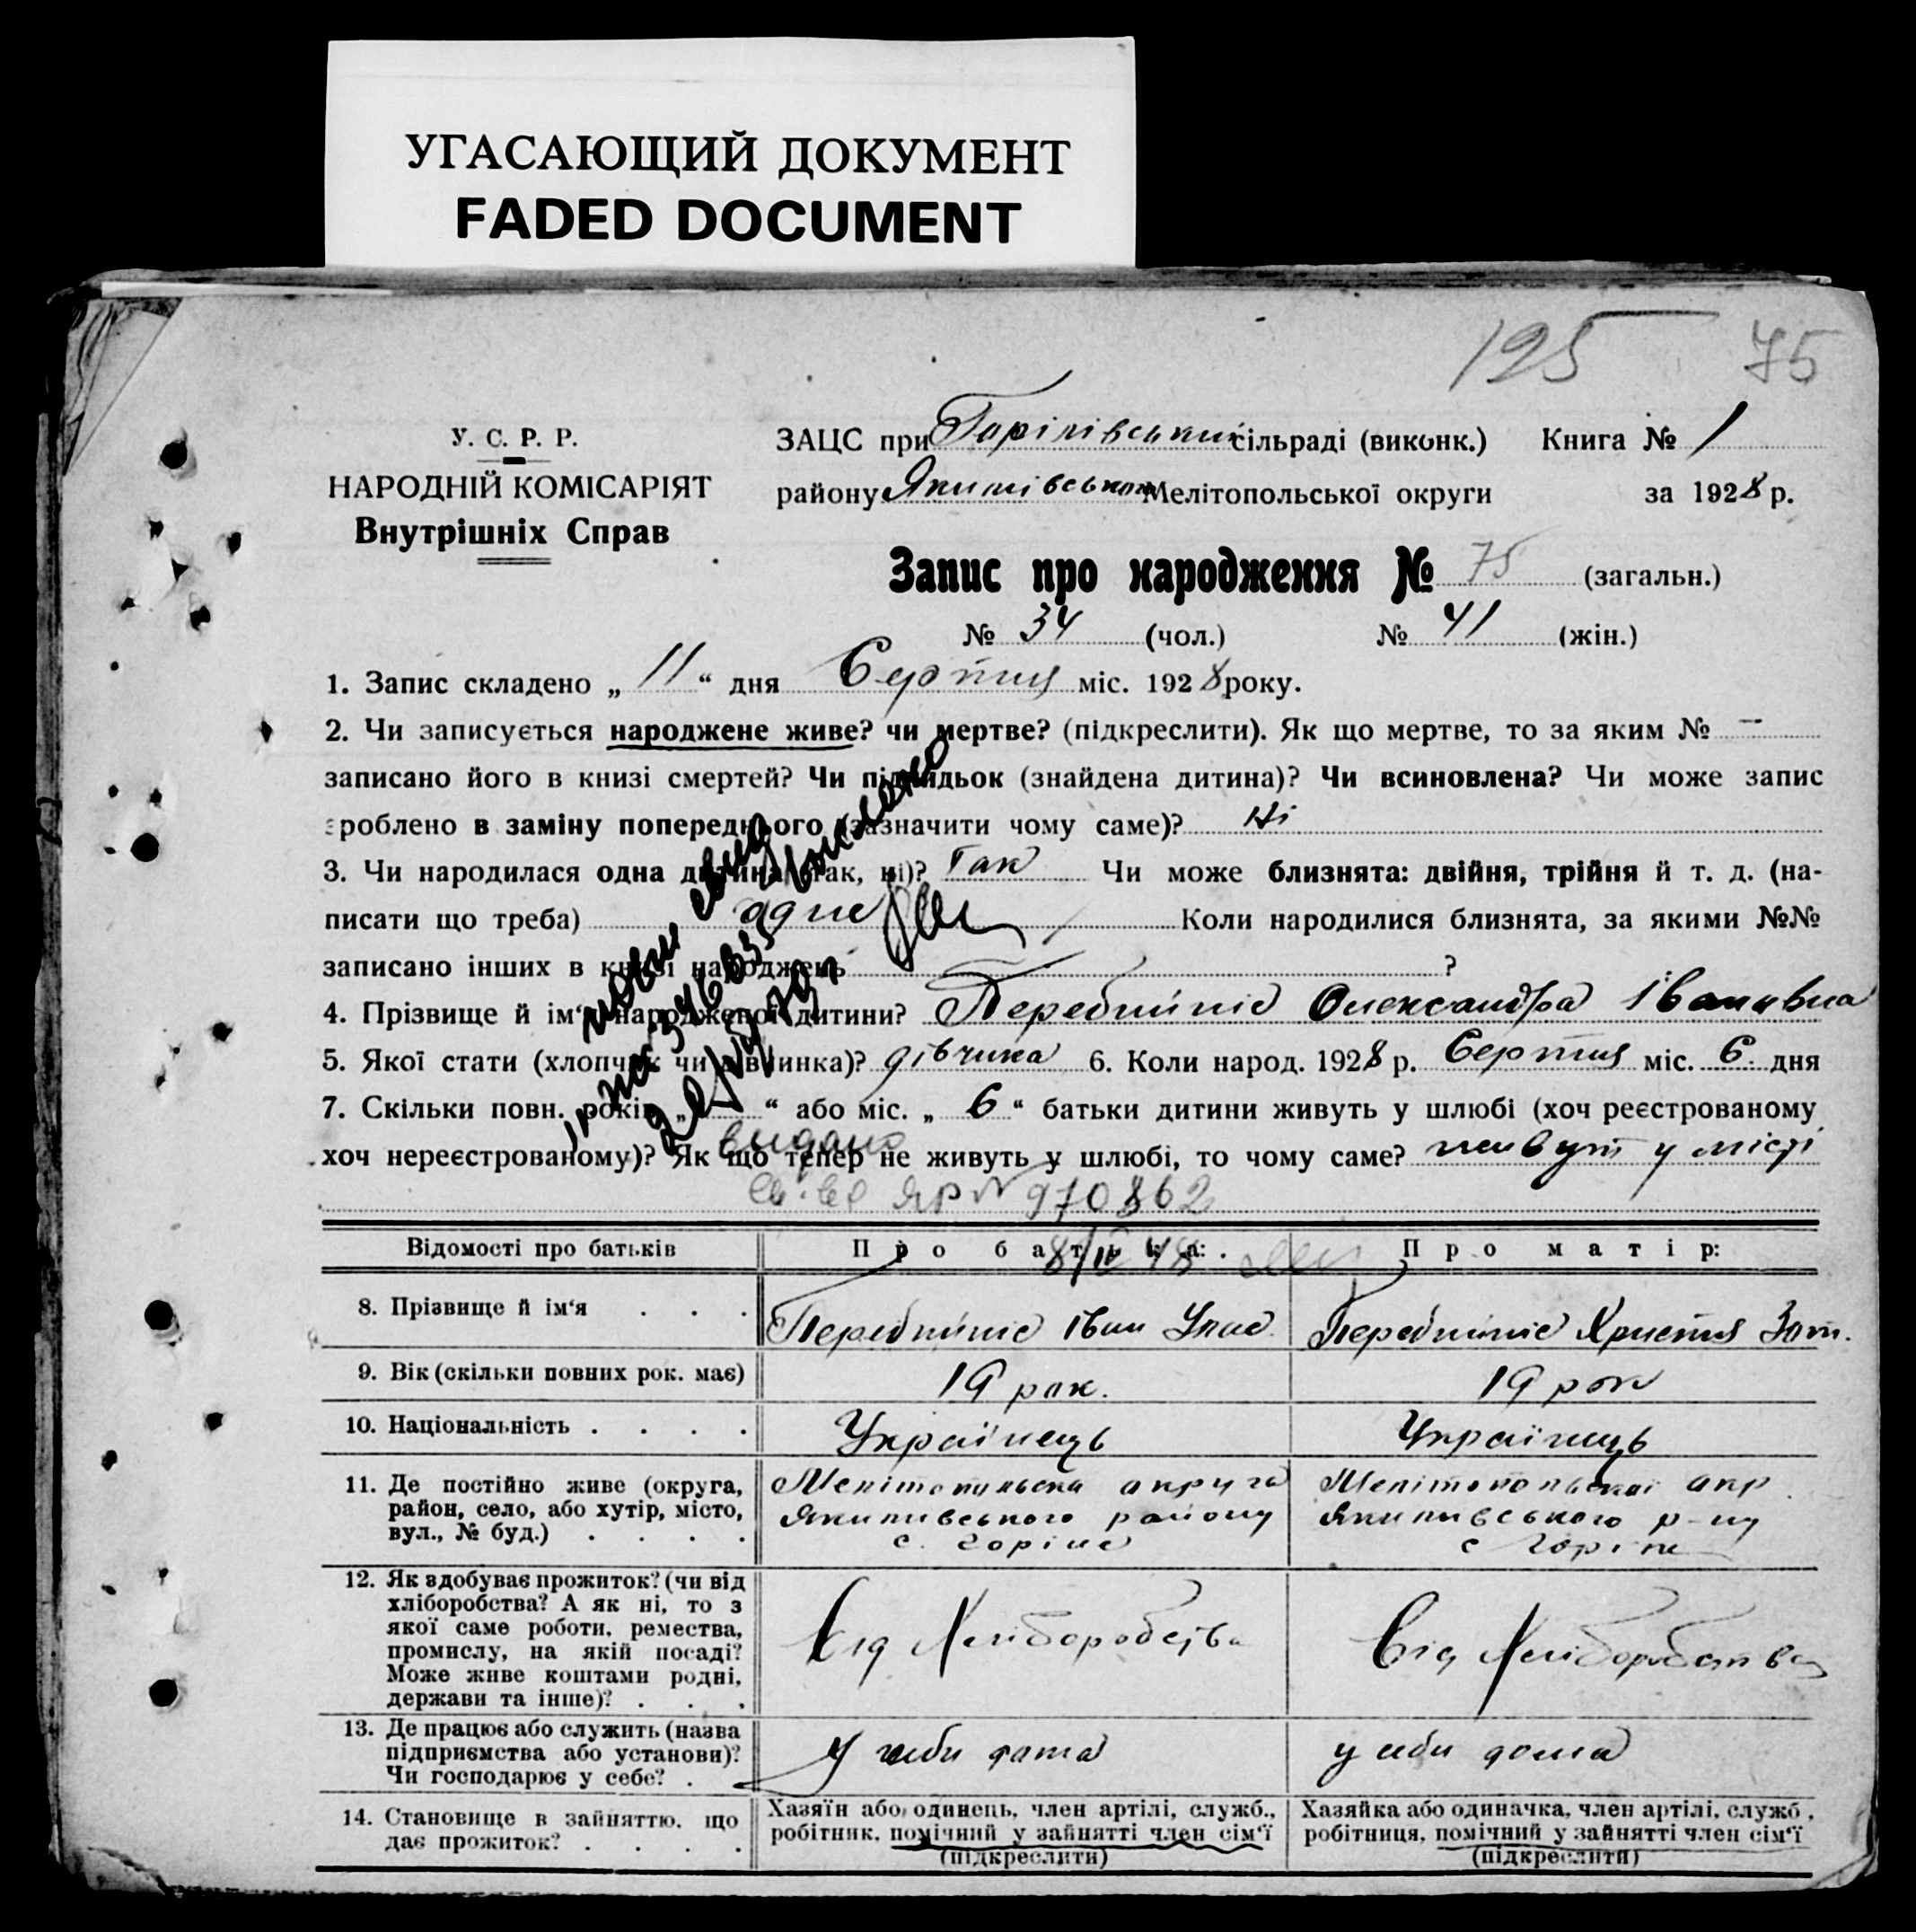 УГАСАЮЩИЙ ДОКУМЕНТ
FADED DOCUMENT
125 75
У. С. Р. Р.
НАРОДНІЙ КОМІСАРІЯТ
Внутрішніх Справ
ЗАЦС при сільраді (виконк.) Книга № 1
району Мелітопольської округи за 1928 р.
Запис про народження № 75 (загальн.)
№ 34 (чол.) № 41 (жін.)
1. Запис складено „ 11 “ дня Серпня міс. 1928 року.
2. Чи записується народжене живе? чи мертве? (підкреслити). Як що мертве, то за яким № —
записано його в книзі смертей? Чи підкидьок (знайдена дитина)? Чи всиновлена? Чи може запис
зроблено в заміну попереднього (зазначити чому саме)? Ні
3. Чи народилася одна дитина (так, ні)? Так Чи може близнята: двійня, трійня й т. д. (на-
писати що треба) одне Коли народилися близнята, за якими №№
записано інших в книзі народжень ?
4. Прізвище й ім‘я народженої дитини? Перебийніс Олександра Іванівна
5. Якої стати (хлопчик чи дівчинка)? дівчина 6. Коли народ. 1928 р. Серпня міс. 6 дня
7. Скільки повн. років „ “ або міс. „ 6 “ батьки дитини живуть у шлюбі (хоч реєстрованому
хоч нереєстрованому)? Як що тепер не живуть у шлюбі, то чому саме? живут у місті
видано
ЯР № 970862
8/IV 48
Відомості про батьків Про батька: Про матір:
8. Прізвище й ім‘я . . . Перебийніс Іван Упас. Перебийніс Христя Зот.
9. Вік (скільки повних рок. має) 19 рок. 19 рок
10. Національність . . . . Українець Українець
11. Де постійно живе (округа, Мелітопольска округа Мелітопольскаї окр.
район, село, або хутір, місто, Якимивського району Якимивського р-ну
вул., № буд.) . . . . с. Горіне с Горіне
12. Як здобуває прожиток? (чи від
хліборобства? А як ні, то з
якої саме роботи, ремества, Від Хліборобства Від Хліборобства
промислу, на якій посаді?
Може живе коштами родні,
держави та інше)? . . .
13. Де працює або служить (назва
підприємства або установи)? У себи дома у себи дома
Чи господарює у себе? .
14. Становище в зайняттю, що Хазяїн або одинець, член артілі, служб., Хазяйка або одиначка, член артілі, служб.,
дає прожиток? . . . . робітник, помічний у зайнятті член сім‘ї робітниця, помічний у зайнятті член сім‘ї
(підкреслити) (підкреслити)